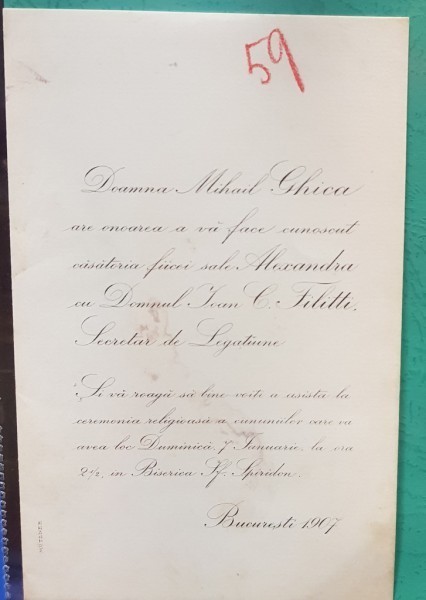 59
Doamna Mihail Ghica
are onoarea a vă face cunoscut
căsătoria fiicei sale Alexandra
cu Domnul Ioan C. Filitti,
Secretar de Legațiune
Și vă roagă să bine voiți a asista la
ceremonia religioasă a cununiilor care va
avea loc Duminică, 7 Ianuarie, la ora
2½, in Biserica Sf. Spiridon.
București 1907